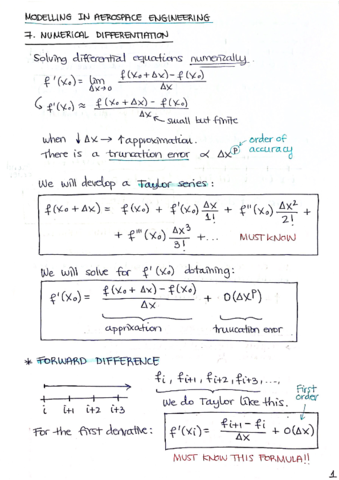 MODELLING IN AEROSPACE ENGINEERING
7. NUMERICAL DIFFERENTIATION
Solving differential equations numerically.
f'(x₀) = lim Δx→0 (f(x₀+Δx) - f(x₀)) / Δx
f'(x₀) ≈ (f(x₀+Δx) - f(x₀)) / Δx
small but finite
when ↓Δx → ↑approximation.
There is a truncation error ∝ Δx^p
order of accuracy
We will develop a Taylor series:
f(x₀+Δx) = f(x₀) + f'(x₀) Δx/1! + f''(x₀) Δx²/2! +
+ f'''(x₀) Δx³/3! + ... MUST KNOW
We will solve for f'(x₀) obtaining:
f'(x₀) = (f(x₀+Δx) - f(x₀)) / Δx + O(Δx^p)
apprixation truncation error
* FORWARD DIFFERENCE
fᵢ, fᵢ₊₁, fᵢ₊₂, fᵢ₊₃, ....
i i+1 i+2 i+3
We do Taylor like this.
First order
For the first derivative: f'(xᵢ) = (fᵢ₊₁ - fᵢ) / Δx + O(Δx)
MUST KNOW THIS FORMULA!!
1